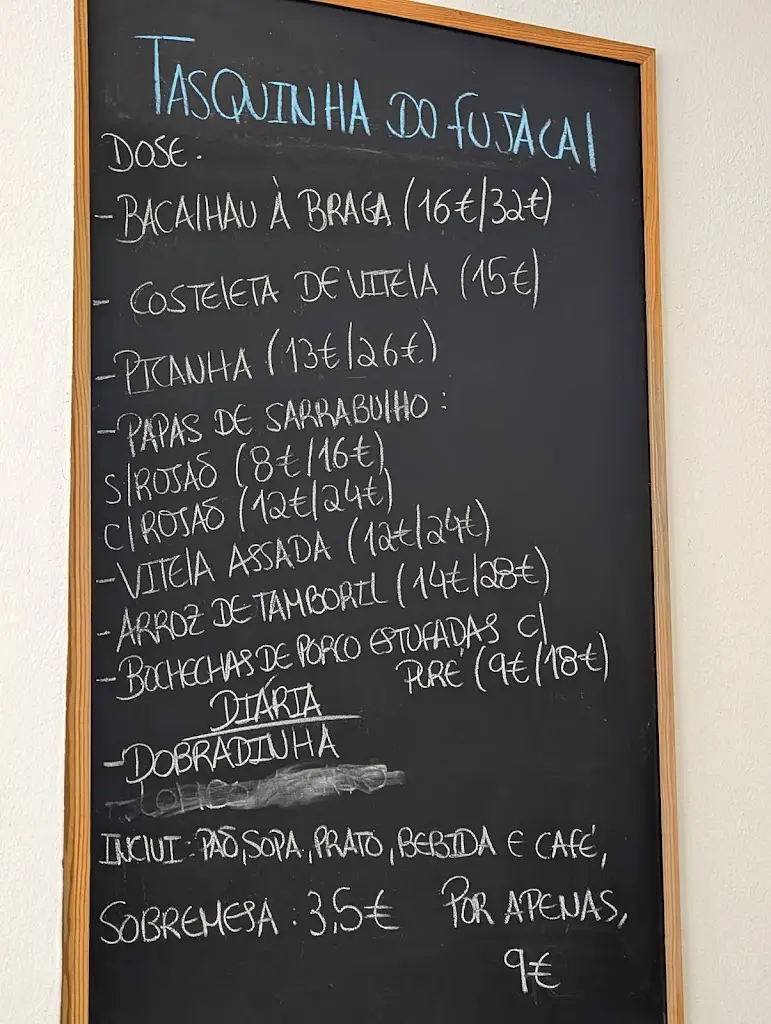 TASQUINHA DO FUJACAL
DOSE.
- BACALHAU À BRAGA (16€/32€)
- COSTELETA DE VITELA (15€)
- PICANHA (13€/26€)
- PAPAS DE SARRABULHO:
S/ROJÃO (8€/16€)
C/ROJÃO (12€/24€)
- VITELA ASSADA (12€/24€)
- ARROZ DE TAMBORIL (14€/28€)
- BOCHECHAS DE PORCO ESTUFADAS C/
PURÉ (9€/18€)
DIÁRIA
- DOBRADINHA
INCLUI: PÃO, SOPA, PRATO, BEBIDA E CAFÉ,
SOBREMESA: 3,5€ POR APENAS,
9€